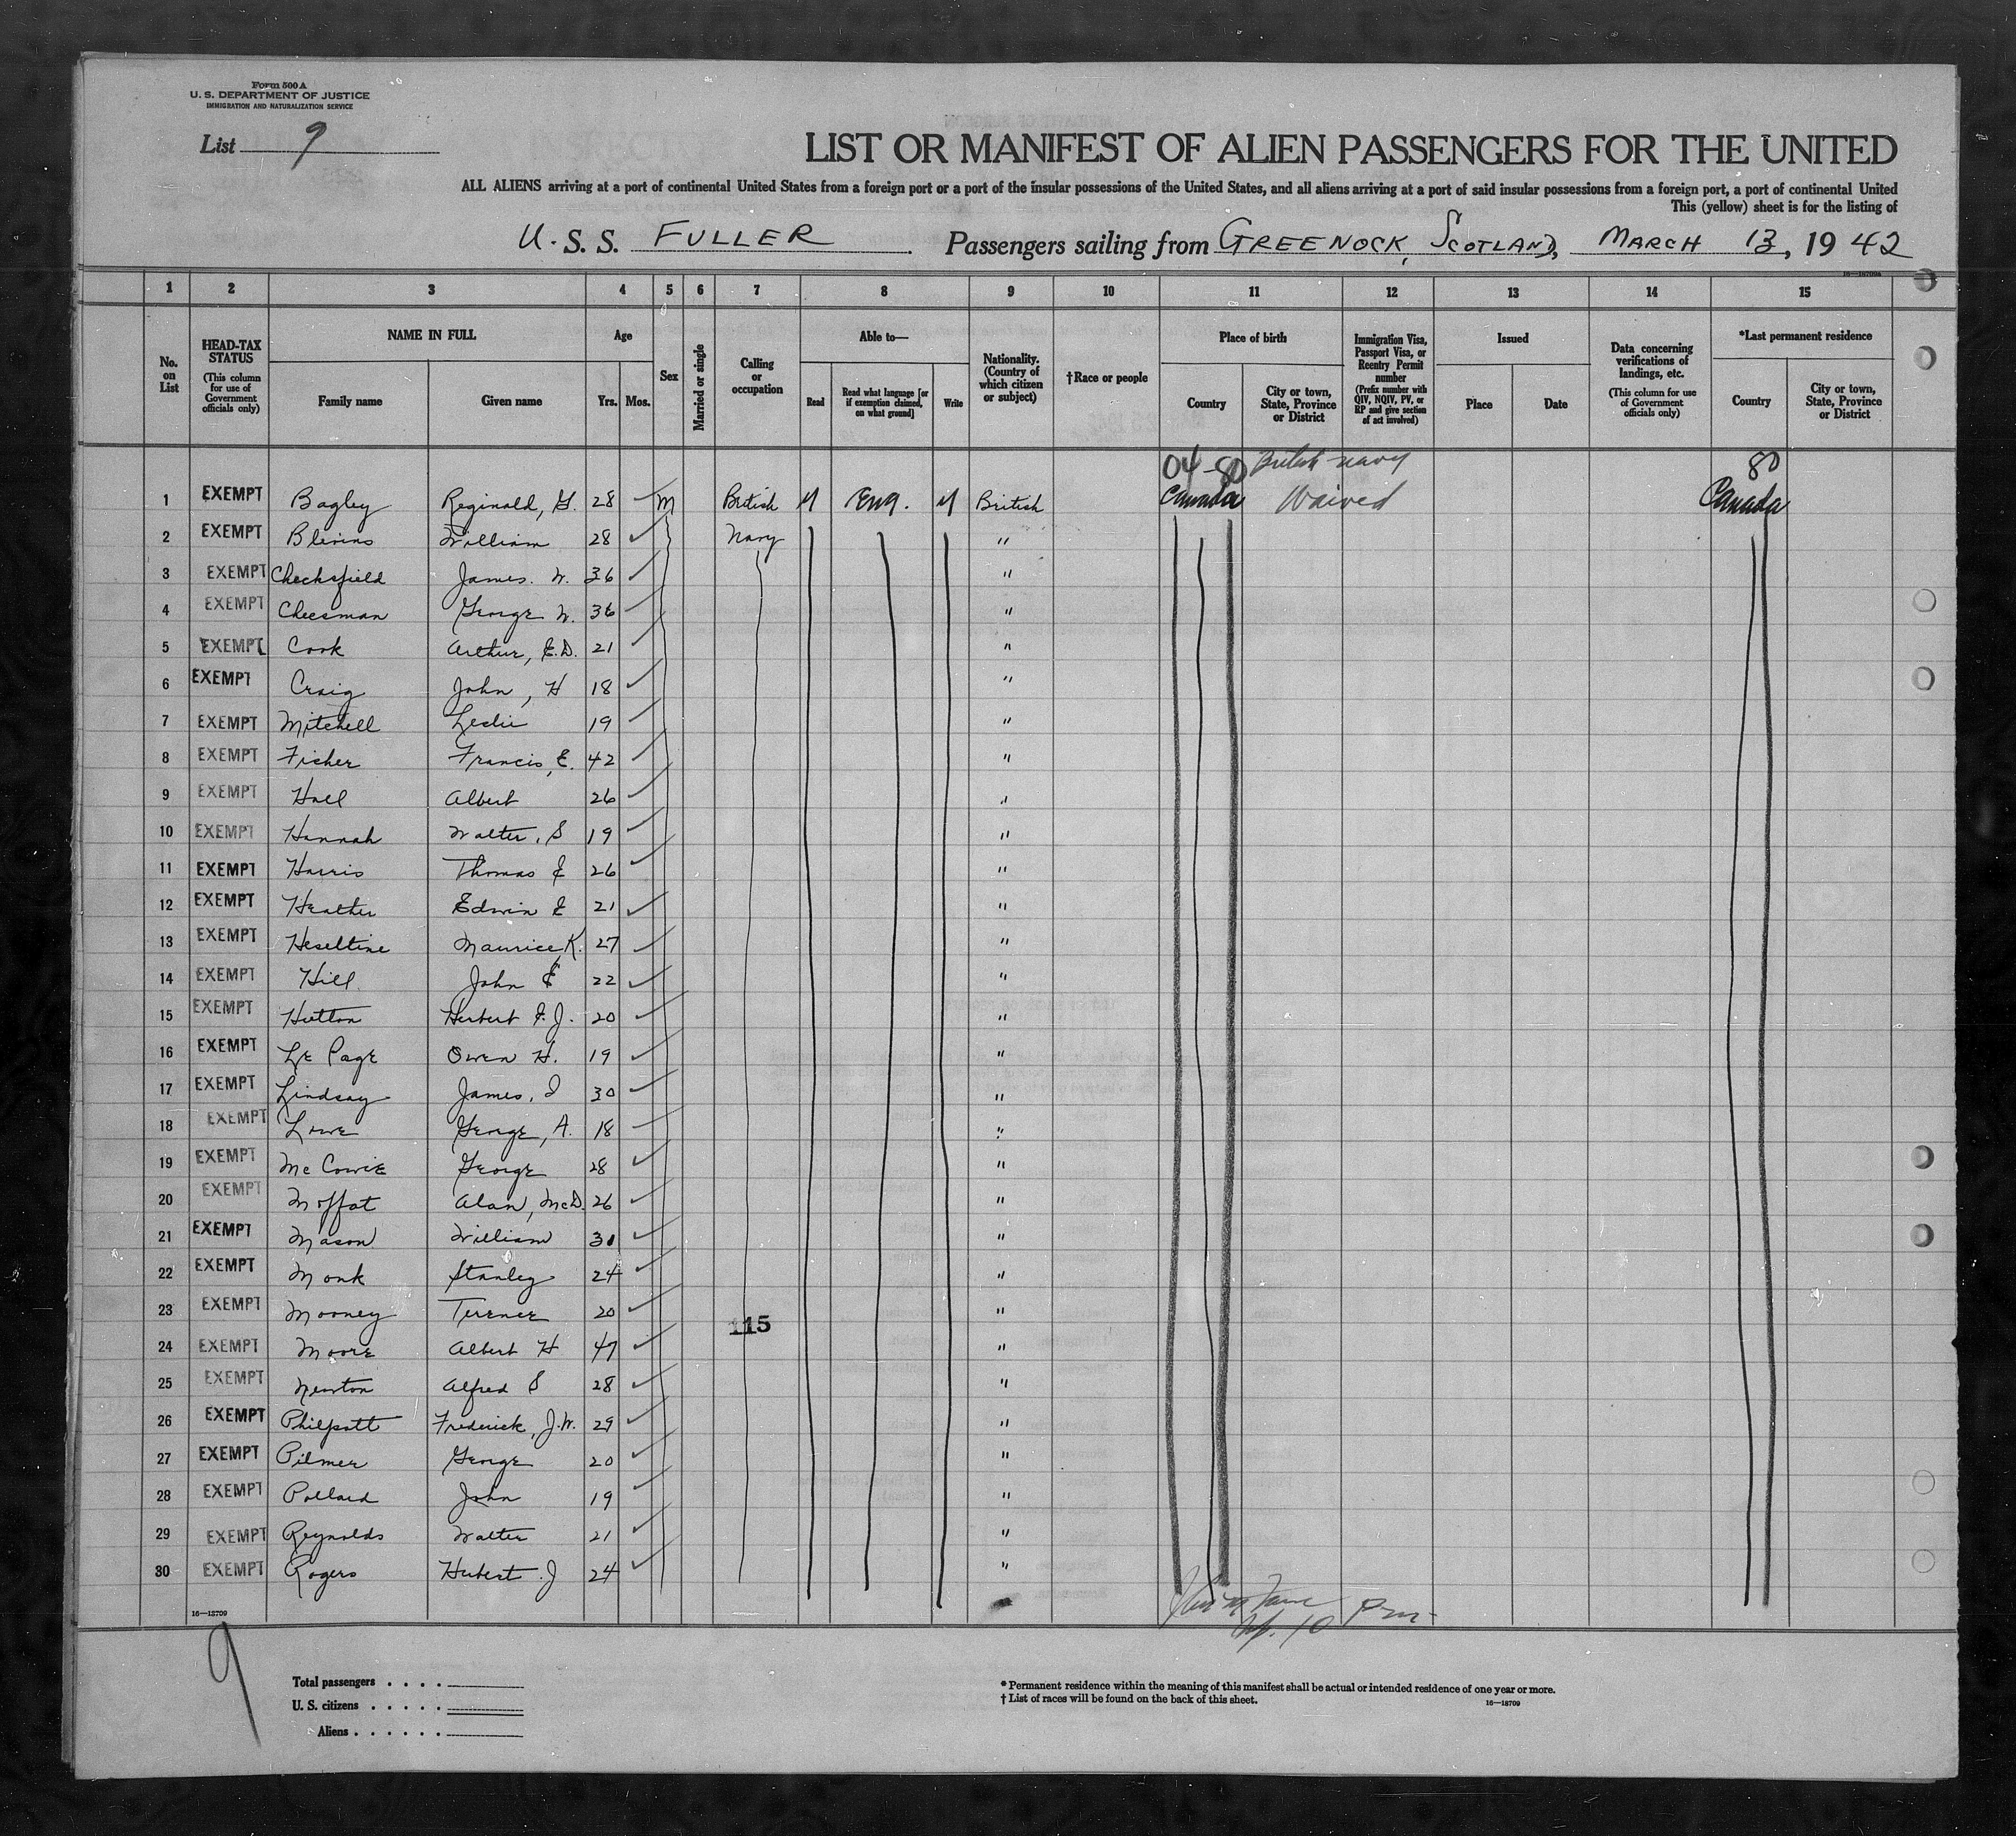 Form 500 A
U. S. DEPARTMENT OF JUSTICE
IMMIGRATION AND NATURALIZATION SERVICE
List 9
LIST OR MANIFEST OF ALIEN PASSENGERS FOR THE UNITED
ALL ALIENS arriving at a port of continental United States from a foreign port or a port of the insular possessions of the United States, and all aliens arriving at a port of said insular possessions from a foreign port, a port of continental United
This (yellow) sheet is for the listing of
U. S. S. FULLER Passengers sailing from GREENOCK, SCOTLAND, MARCH 13, 1942
16—18709A
1 2 3 4 5 6 7 8 9 10 11 12 13 14 15
No. on List
HEAD-TAX STATUS (This column for use of Government officials only)
NAME IN FULL
Family name
Given name
Age
Yrs. Mos.
Sex
Married or single
Calling or occupation
Able to—
Read
Read what language [or if exemption claimed, on what ground]
Write
Nationality. (Country of which citizen or subject)
†Race or people
Place of birth
Country
City or town, State, Province or District
Immigration Visa, Passport Visa, or Reentry Permit number (Prefix number with QIV, NQIV, PV, or RP and give section of act involved)
Issued
Place
Date
Data concerning verifications of landings, etc. (This column for use of Government officials only)
*Last permanent residence
Country
City or town, State, Province or District
04-80 British navy 80
1 EXEMPT Bagley Reginald, G. 28 M British Y Eng. Y British Canada Waived Canada
2 EXEMPT Blevins William 28 Navy "
3 EXEMPT Checksfield James. W. 36 "
4 EXEMPT Cheesman George W. 36 "
5 EXEMPT Cook Arthur, E.D. 21 "
6 EXEMPT Craig John, H 18 "
7 EXEMPT Mitchell Leslie 19 "
8 EXEMPT Fisher Francis, E. 42 "
9 EXEMPT Hall Albert 26 "
10 EXEMPT Hannah Walter, S 19 "
11 EXEMPT Harris Thomas E 26 "
12 EXEMPT Heather Edwin E 21 "
13 EXEMPT Heseltine Maurice K. 27 "
14 EXEMPT Hill John E 22 "
15 EXEMPT Hutton Herbert E.J. 20 "
16 EXEMPT Le Page Owen H. 19 "
17 EXEMPT Lindsay James, I 30 "
18 EXEMPT Lowe George, A. 18 "
19 EXEMPT McCowie George 28 "
20 EXEMPT Moffat Alan, McD. 26 "
21 EXEMPT Mason William 31 "
22 EXEMPT Monk Stanley 24 "
23 EXEMPT Mooney Terence 20 "
115
24 EXEMPT Moore Albert H 47 "
25 EXEMPT Newton Alfred S 28 "
26 EXEMPT Philpott Frederick, J.W. 29 "
27 EXEMPT Pilmer George 20 "
28 EXEMPT Pollard John 19 "
29 EXEMPT Reynolds Walter 21 "
30 EXEMPT Rogers Hubert. J 24 "
10
16—18709
9
Total passengers . . . .
U. S. citizens . . . . .
Aliens . . . . . .
* Permanent residence within the meaning of this manifest shall be actual or intended residence of one year or more.
† List of races will be found on the back of this sheet.
16—18709